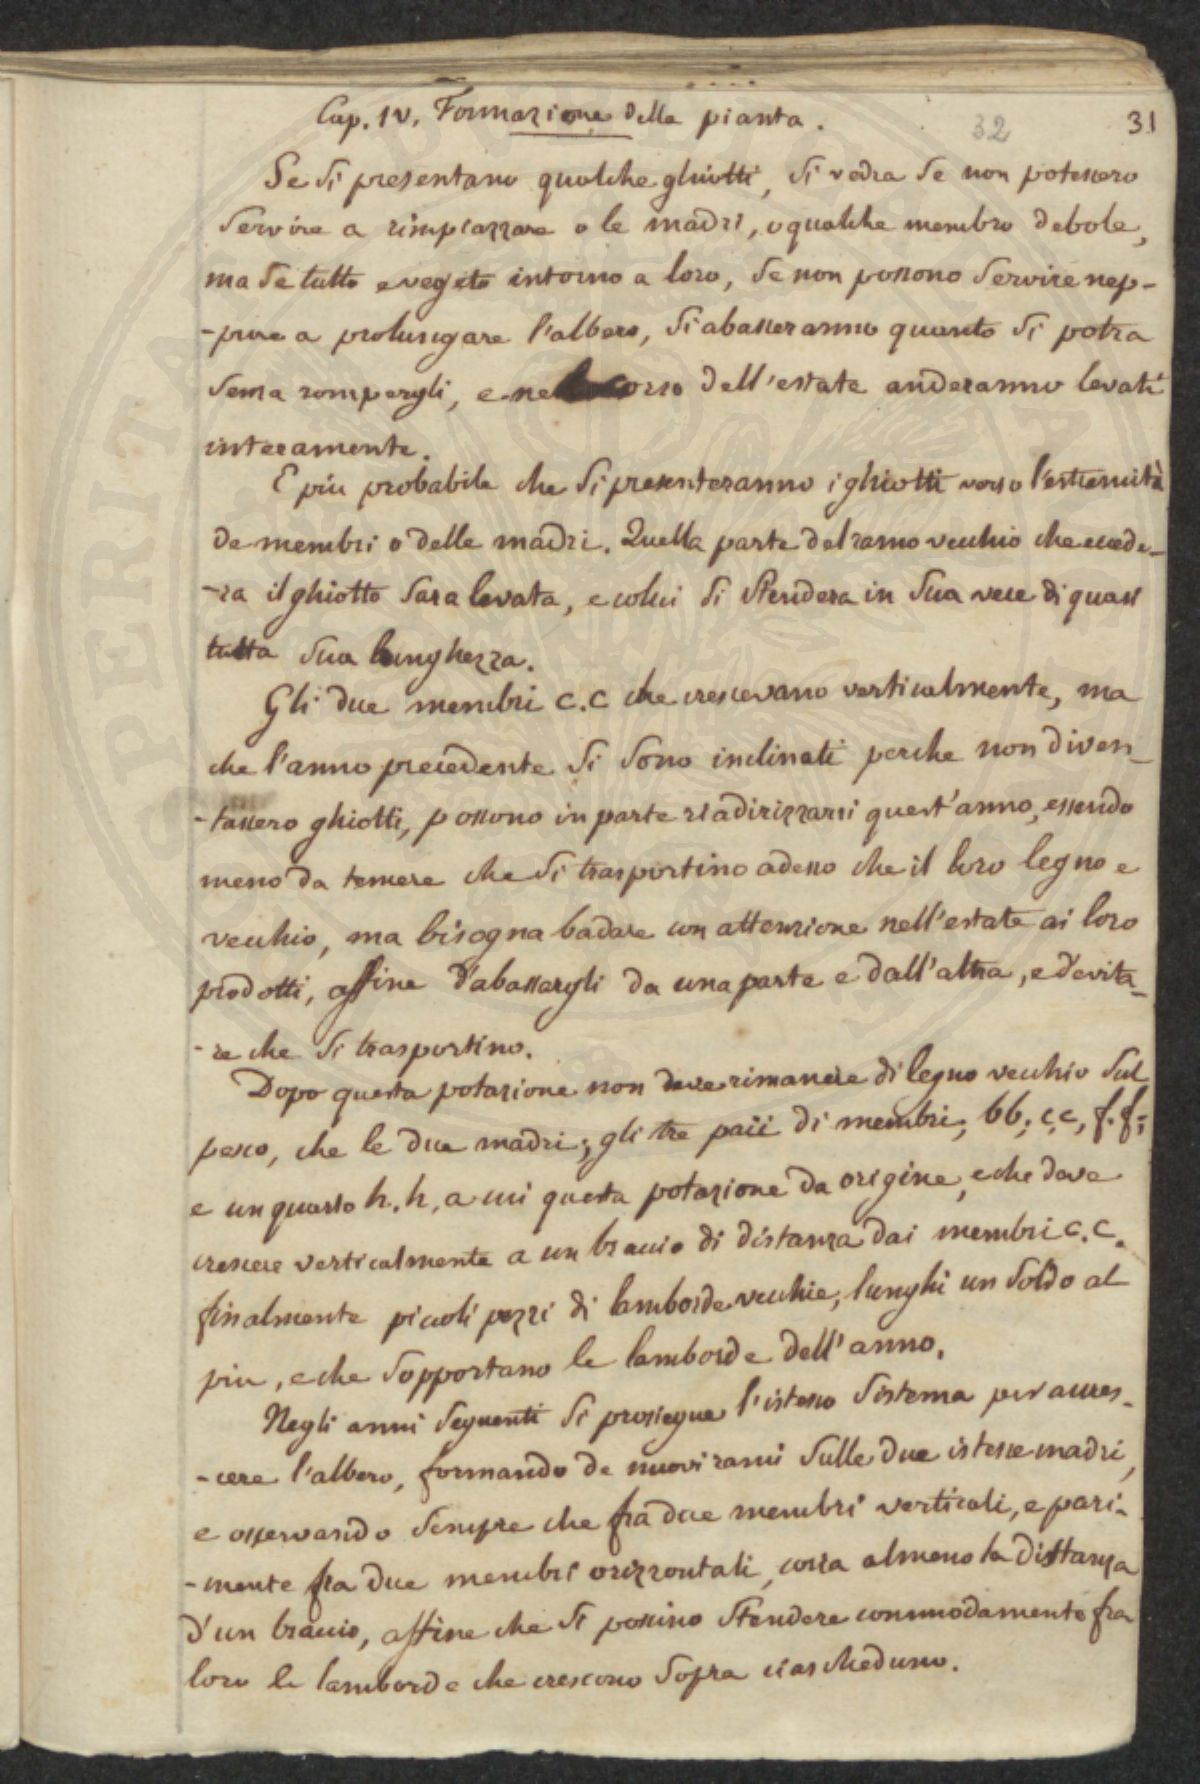 Cap. IV. Formazione della pianta. 32 31
Se si presentano qualche ghiotti, si vedra se non potessero
servire a rimpiazzare o le madri, o qualche membro debole,
ma se tutto e vegeto intorno a loro, se non possono servire nep-
-pure a prolungare l'albero, si abasseranno quanto si potra
senza rompergli, e nel corso dell'estate anderanno levati
interamente.
E piu probabile che si presenteranno i ghiotti verso l'estremità
de membri o delle madri. Quella parte del ramo vecchio che ecede-
-ra il ghiotto sara levata, e colui si stendera in sua vece di quasi
tutta sua lunghezza.
Gli due membri c.c che crescevano verticalmente, ma
che l'anno precedente si sono inclinati perche non diven-
-tassero ghiotti, possono in parte riadirizzarsi quest'anno, essendo
meno da temere che si trasportino adesso che il loro legno e
vecchio, ma bisogna badare con attenzione nell'estate ai loro
prodotti, affine d'abassargli da una parte e dall'altra, e d'evita-
-re che si trasportino.
Dopo questa potazione non deve rimanere di legno vecchio sul
pesco, che le due madri; gli tre paii di membri; bb; c,c, f.f;
e un quarto h.h, a cui questa potazione da origine, e che deve
crescere verticalmente a un braccio di distanza dai membri c.c.
finalmente piccoli pezzi di lamborde vecchie, lunghi un soldo al
piu, e che sopportano le lamborde dell'anno.
Negli anni seguenti si prosiegue l'istesso sistema per acres-
-cere l'albero, formando de nuovi rami sulle due istesse madri,
e osservando sempre che fra due membri verticali, e pari-
-mente fra due membri orizzontali, corra almeno la distanza
d'un braccio, affine che si possino stendere commodamente fra
loro le lamborde che crescono sopra ciascheduno.